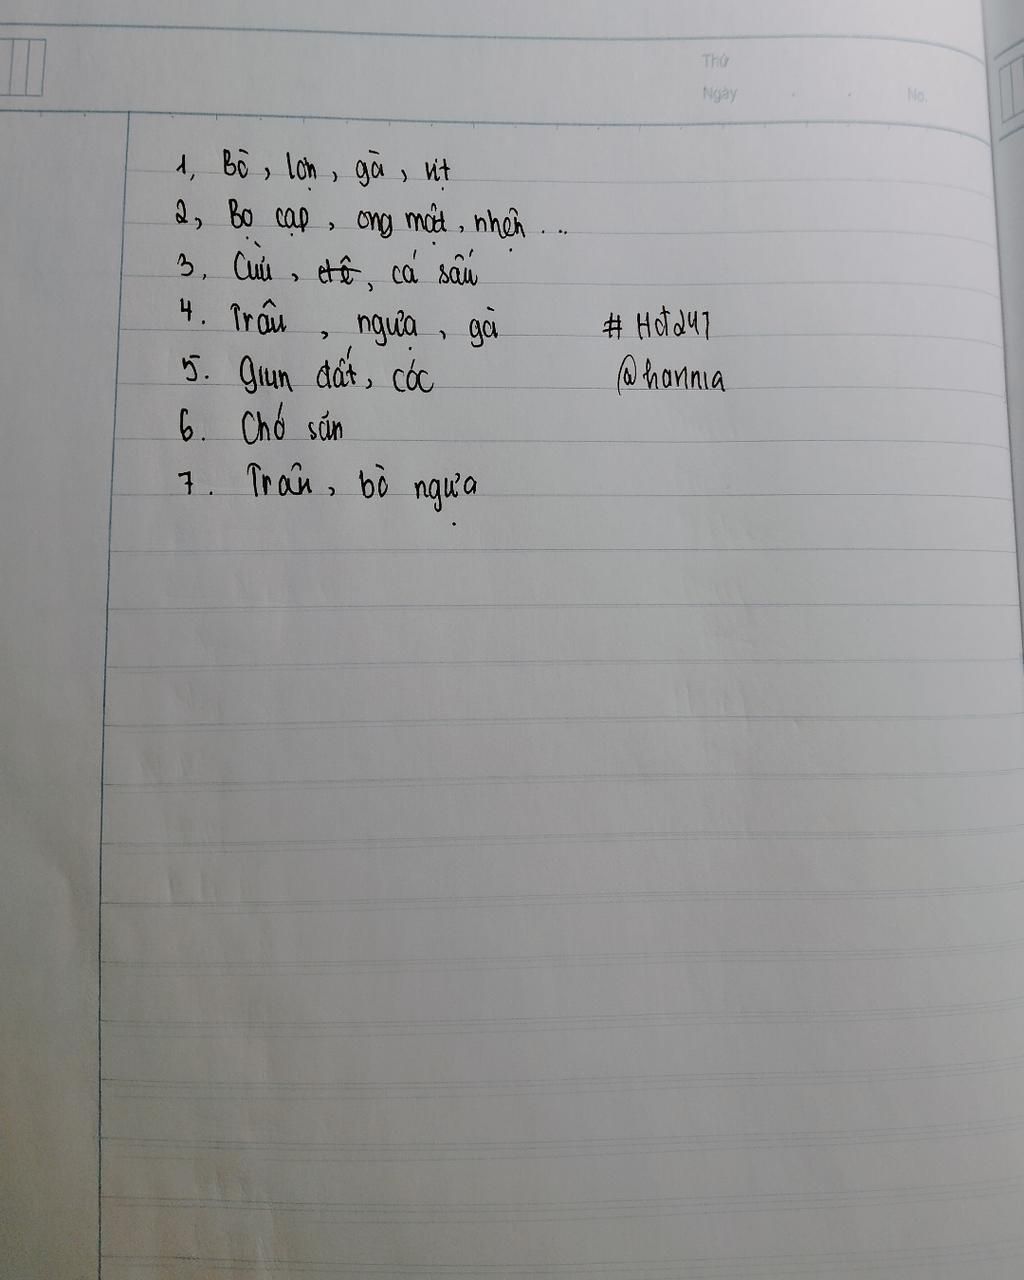 Thứ
Ngày . . No.
1, Bò, lợn, gà, vịt
2, Bọ cạp, ong mật, nhện ...
3, Cừu, dê, cá sấu
4. Trâu, ngựa, gà # Hdt247
5. Giun đất, cóc @hannia
6. Chó săn
7. Trâu, bò ngựa